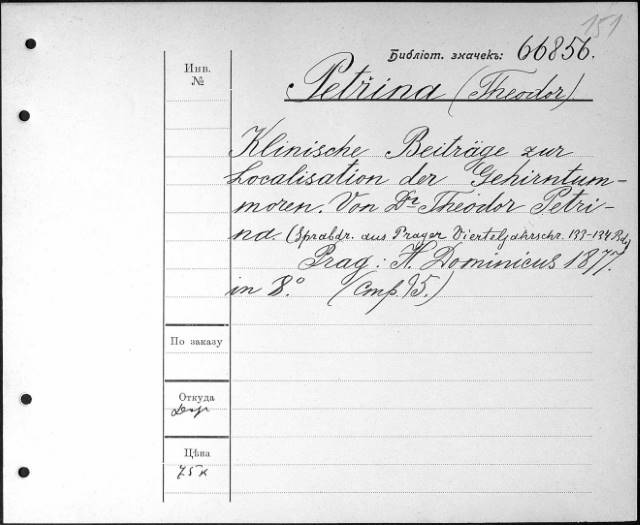 151
Библіот. значекъ: 66856.
Инв.
№
Petřina (Theodor)
Klinische Beiträge zur
Localisation der Gehirntum-
moren. Von Dr. Theodor Petři-
na. (Sprabdr. aus Prager Vierteljahrschr. 133-134 Bd.)
Prag: H. Dominicus 1877.
in 8.° (Стр. 95.)
По заказу
Откуда
Цѣна
75 к